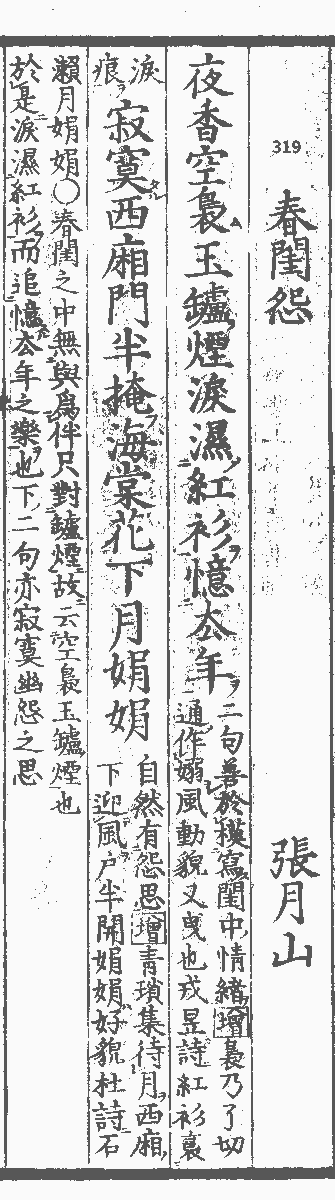 319
春閨怨 張月山
夜香空裊玉鑪煙淚濕紅衫憶去年
二句善於模寫閨中情緒 增 裊乃了切
通作嫋風動貌又曳也戎昱詩紅衫裏
淚痕
寂寞西廂門半掩海棠花下月娟娟
自然有怨思 增 青瑣集待月西廂
下迎風户半開娟娟好貌杜詩石
瀨月娟娟〇春閨之中無與爲伴只對鑪煙故云空裊玉鑪煙也
於是淚濕紅衫而追憶去年之樂也下二句亦寂寞幽怨之思